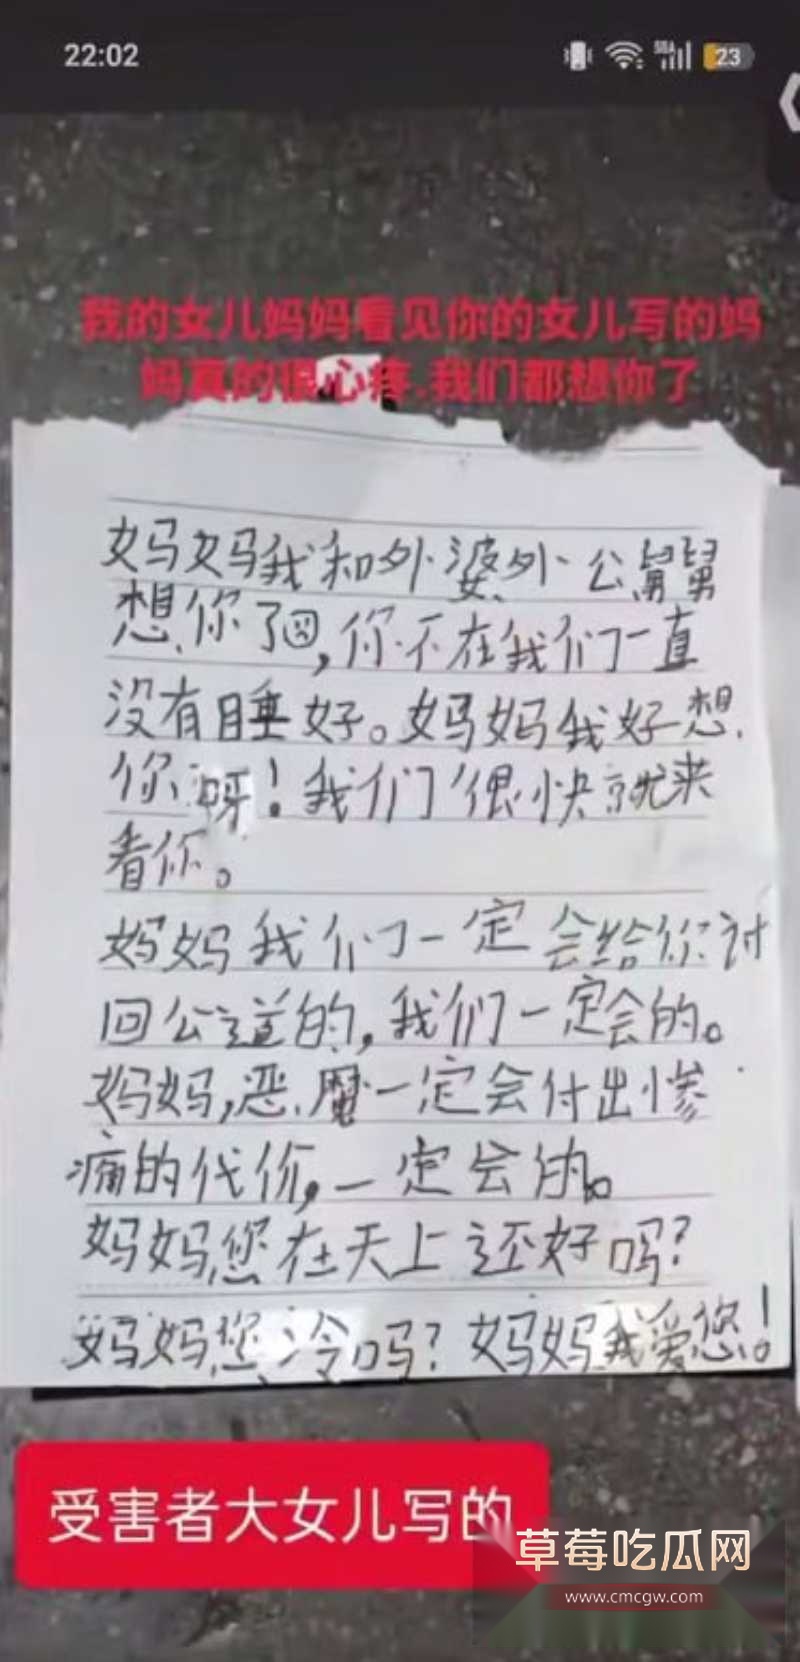 22:02
23
我的女儿妈妈看见你的女儿写的妈
妈真的很心疼.我们都想你了
妈妈我和外婆外公舅舅
想你了,你不在我们一直
没有睡好。妈妈我好想
你呀!我们很快就来
看你。
妈妈我们一定会给你讨
回公道的,我们一定会的。
妈妈,恶魔一定会付出惨
痛的代价,一定会的。
妈妈您在天上还好吗?
妈妈您冷吗?妈妈我爱您!
受害者大女儿写的
草莓吃瓜网
www.cmcgw.com